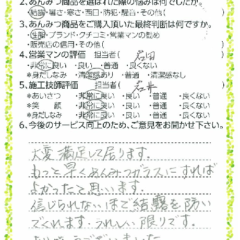 2.あんみつ商品を選ばれた際の悩みは何でしたか。
結露・暑さ・寒さ・西日・防犯・騒音・その他(　)
3.あんみつ商品をご購入頂いた最終判断は何ですか。
性能・ブランド・クチコミ・営業マンの勧め
販売店の信用・その他(　)
4.営業マンの評価　担当者(　)
非常に良い・良い・普通・良くない
●身だしなみ　清潔感あり・普通・清潔感なし
5.施工技師評価　担当者(　)
●あいさつ　非常に良い・良い・普通・良くない
●笑顔　非常に良い・良い・普通・良くない
●身だしなみ　非常に良い・良い・普通・良くない
6.今後のサービス向上のため、ご意見をお聞かせ下さい。
大変満足して居ります。
もっと早くあんみつガラスにすれば
よかったと思います。
信じられないほど結露を防い
でくれます。うれしい限りです。
ありがとうございました